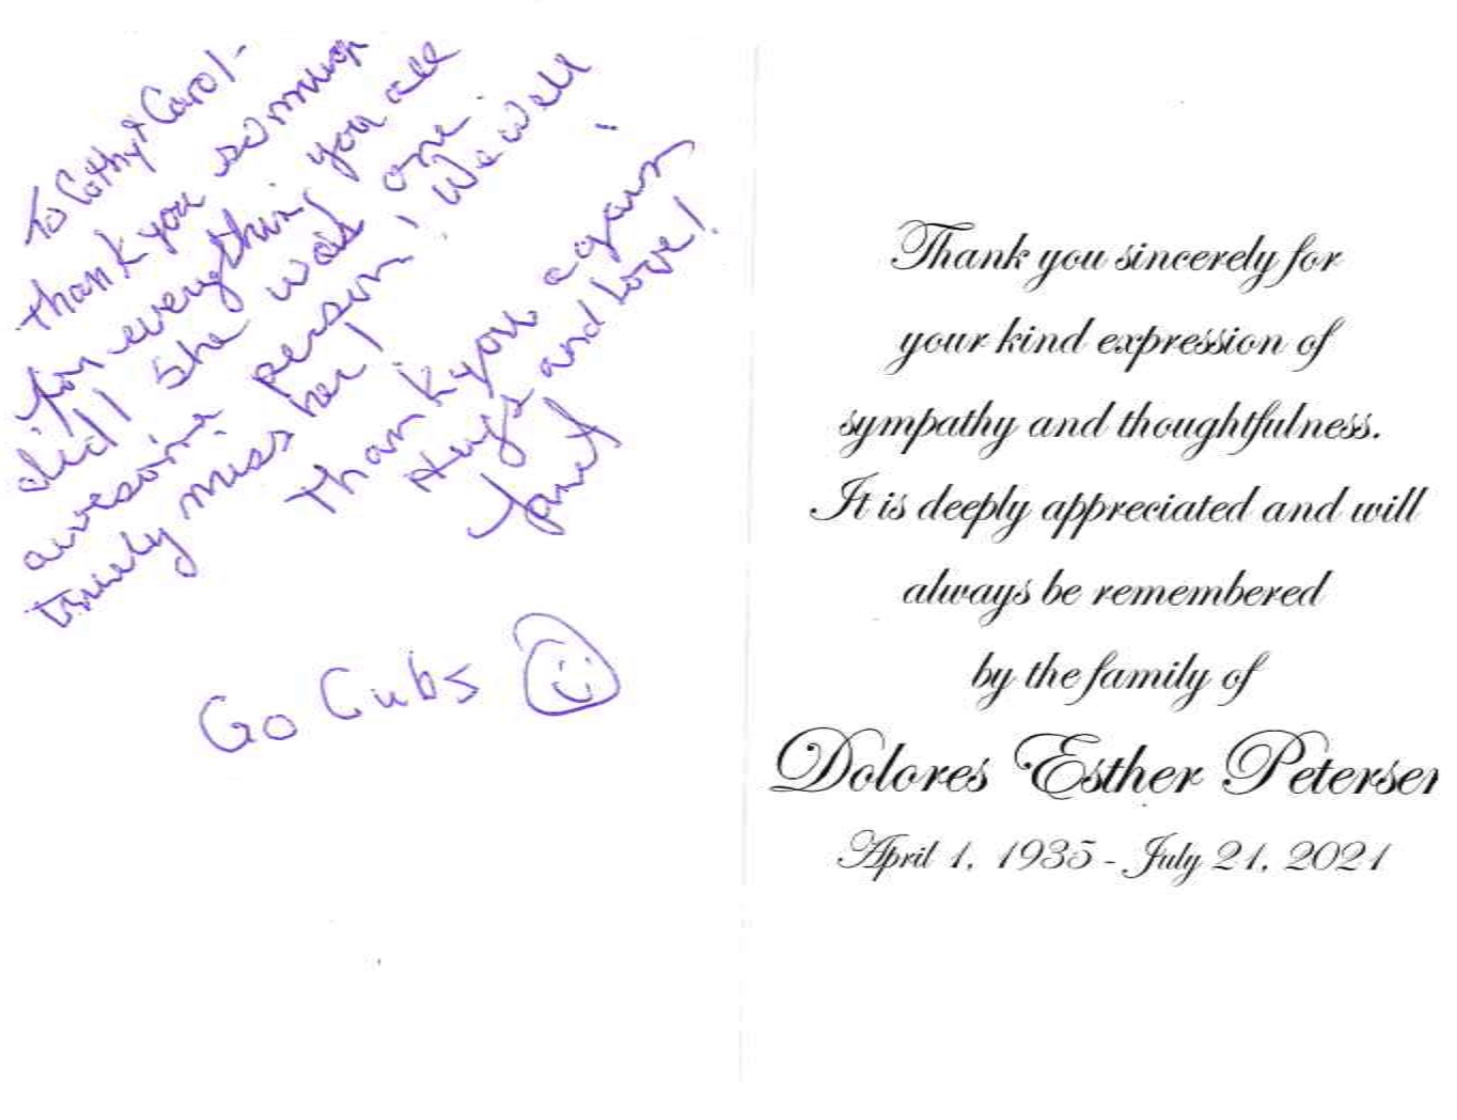 To Cathy & Carol-
Thank you so much
for everything you all
did! She was one
awesome person! We will
truly miss her!
Thank you again!
Hugs and Love!
Janet
Go Cubs
Thank you sincerely for
your kind expression of
sympathy and thoughtfulness.
It is deeply appreciated and will
always be remembered
by the family of
Dolores Esther Petersen
April 1, 1935 - July 21, 2021